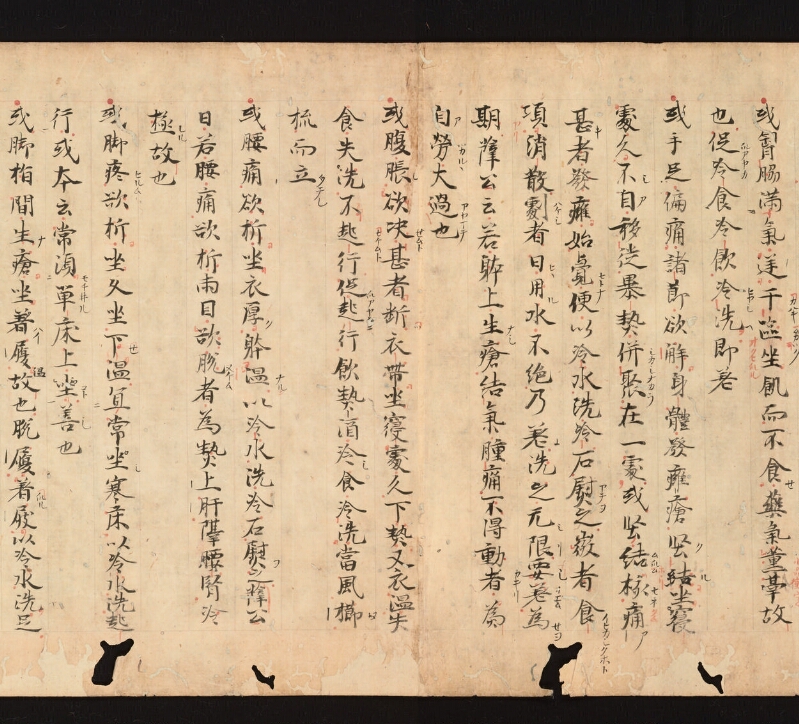 或胷脇満氣逆干嘔坐飢而不食藥氣薰䔿故
也促冷食冷飲冷洗即差
或手足偏痛諸節欲解身體發癰瘡坚結坐寝
處久不自移徙暴熱併聚在一處或坚結極痛
甚者發癰始覺便以冷水洗冷石熨之微者食
項消散劇者日用水不絶乃差洗之无限要差為
期薛公云若躰上生瘡結氣腫痛不得動者為
自勞大過也
或腹脹欲决甚者断衣帶坐寝處久下熱又衣温失
食失洗不起行促起行飲熱酒冷食冷洗當風櫛
梳而立
或腰痛欲析坐衣厚躰温以冷水洗冷石熨之薛公
曰若腰痛欲析兩目欲脱者為熱上肝膈腰腎冷
極故也
或脚疼欲析坐久坐下温宜常坐寒床以冷水洗起
行或本云常須單床上坐善也
或脚指間生瘡坐著履故也脱履著屐以冷水洗足